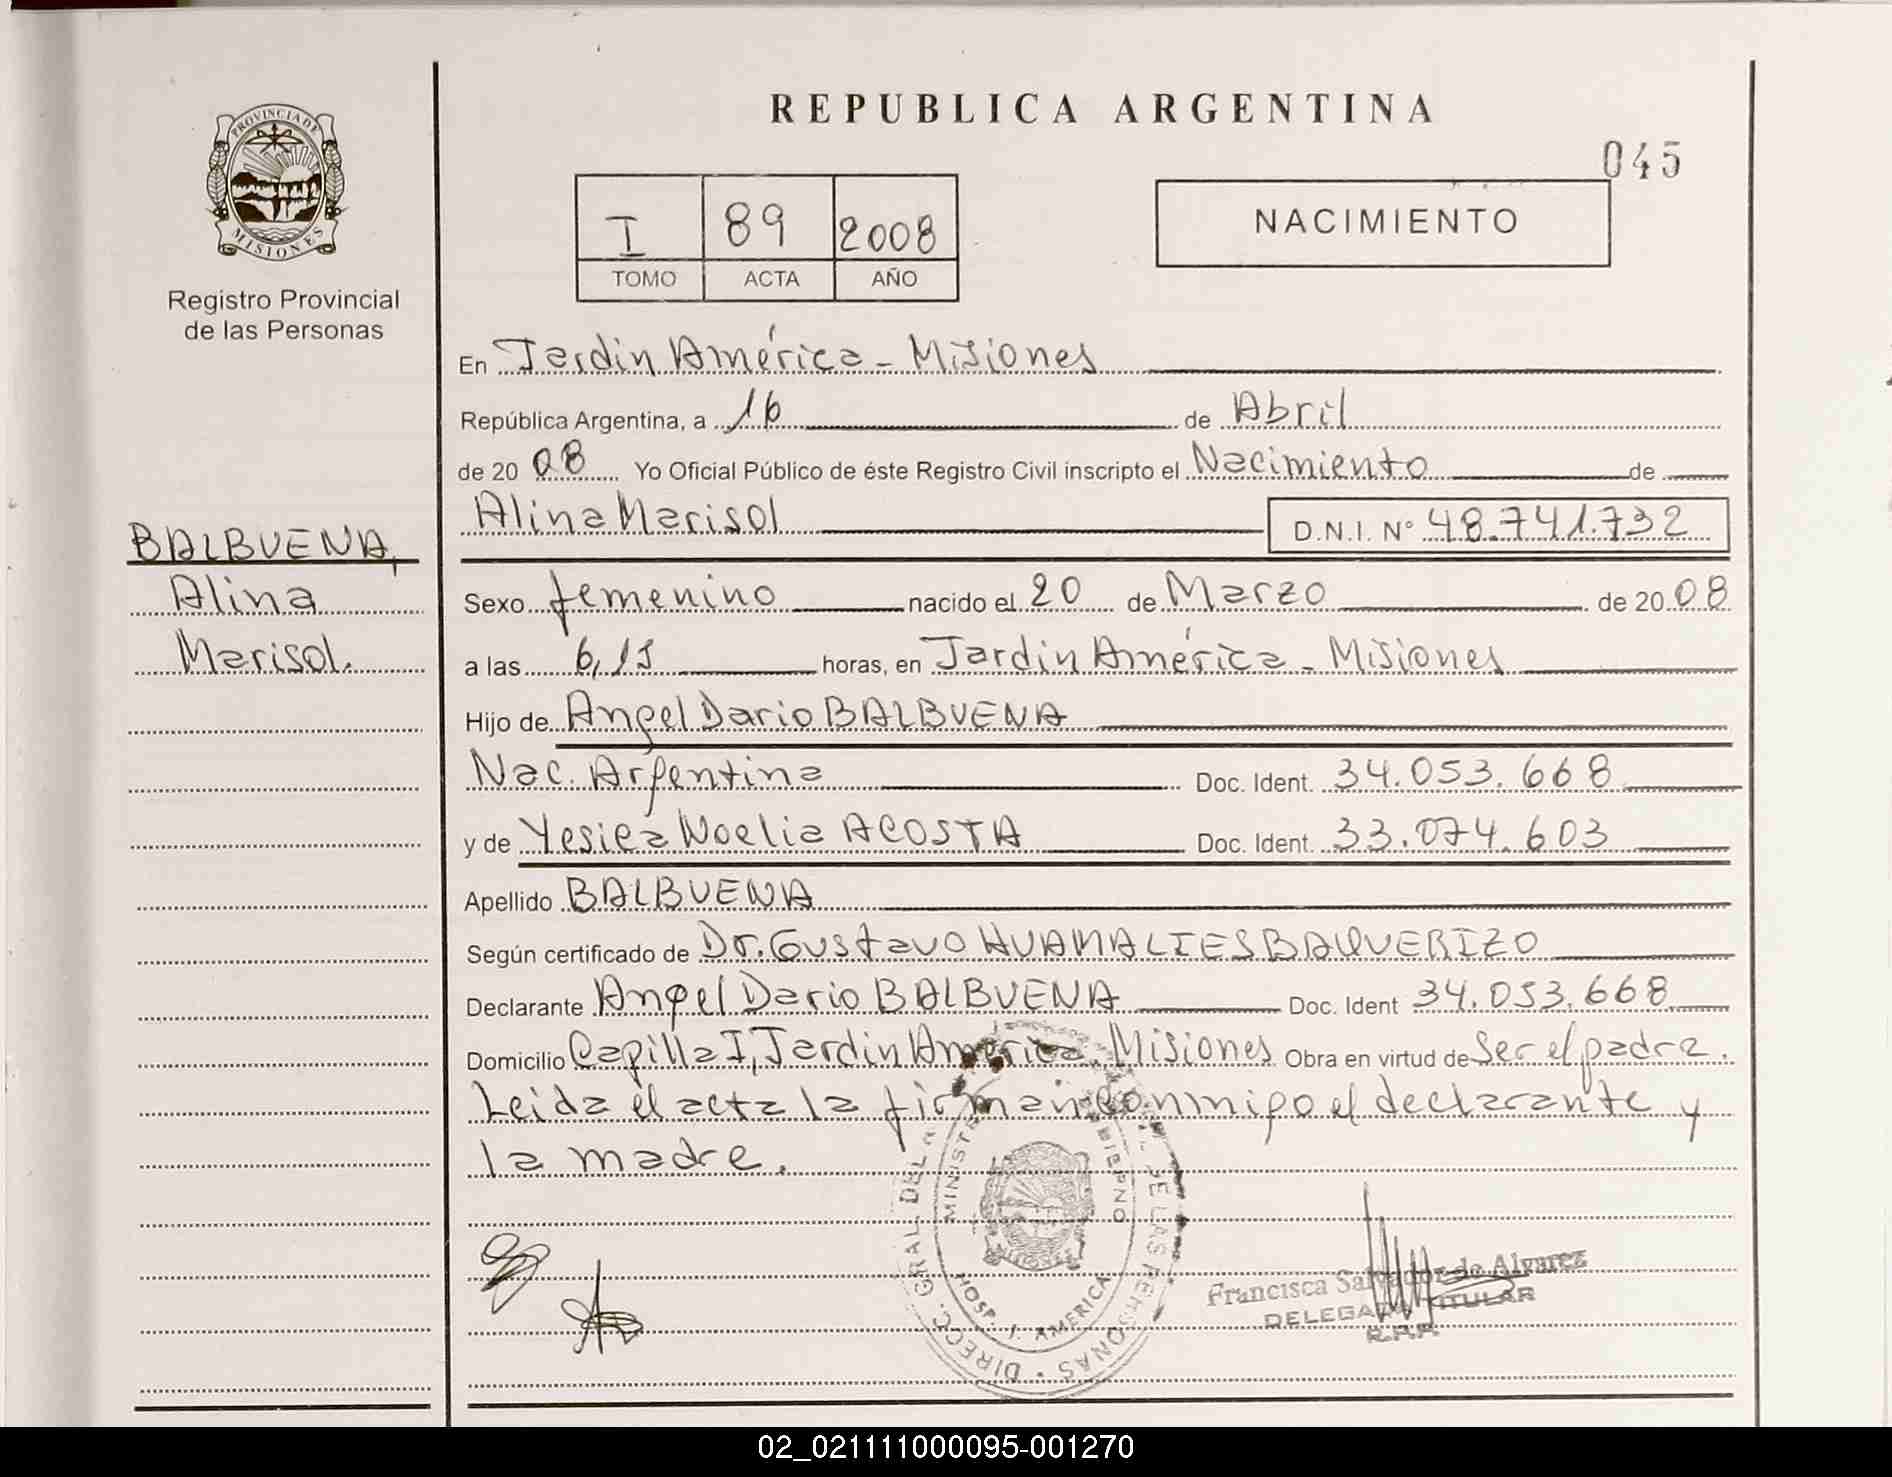 REPUBLICA ARGENTINA
045
PROVINCIA DE MISIONES
Registro Provincial
de las Personas
I 89 2008
TOMO ACTA AÑO
NACIMIENTO
En Jardin América - Misiones
República Argentina, a 16 de Abril
de 20 08 Yo Oficial Público de éste Registro Civil inscripto el Nacimiento de
Alina Marisol D.N.I. N° 48.741.732
BALBUENA,
Alina
Marisol.
Sexo femenino nacido el 20 de Marzo de 20 08
a las 6,15 horas, en Jardin América - Misiones
Hijo de Angel Dario BALBUENA
Nac. Argentina Doc. Ident. 34.053.668
y de Yesica Noelia ACOSTA Doc. Ident. 33.074.603
Apellido BALBUENA
Según certificado de Dr. Gustavo HUAMALIES BAQUERIZO
Declarante Angel Dario BALBUENA Doc. Ident 34.053.668
Domicilio Capilla I, Jardin América Misiones Obra en virtud de Ser el padre.
Leida el acta la firman conmigo el declarante y
la madre.
DIRECC. GRAL. DEL DE LAS PERSONAS
HOSP. J. AMERICA
Francisca Salvador de Alvarez
DELEGADA TITULAR
R.P.P.
02_021111000095-001270